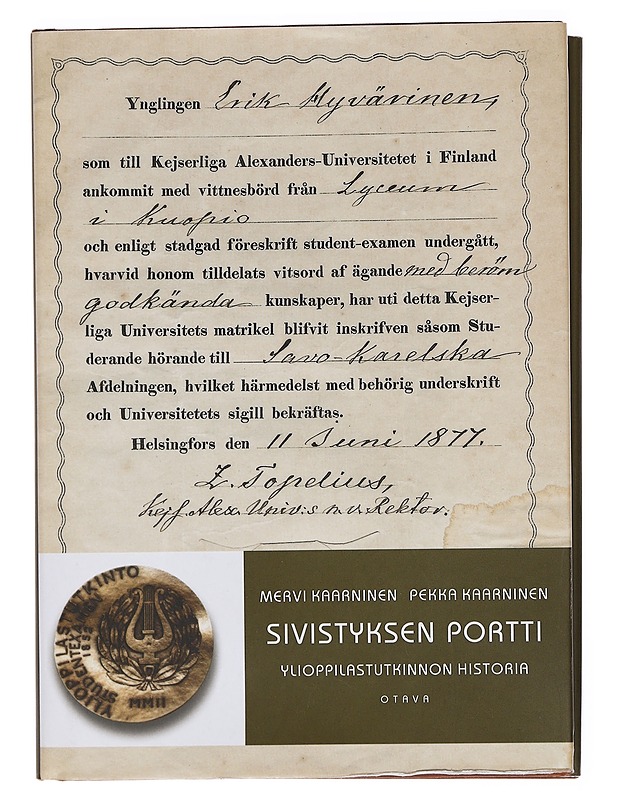 Ynglingen Erik Hyvärinen,
som till Kejserliga Alexanders-Universitetet i Finland
ankommit med vittnesbörd från Lyceum
i Kuopio
och enligt stadgad föreskrift student-examen undergått,
hvarvid honom tilldelats vitsord af ägande med beröm
godkända kunskaper, har uti detta Kejser-
liga Universitets matrikel blifvit inskrifven såsom Stu-
derande hörande till Savo-Karelska
Afdelningen, hvilket härmedelst med behörig underskrift
och Universitetets sigill bekräftas.
Helsingfors den 11 Juni 1877.
Z. Topelius,
Kejs. Alex. Univ:s n.v. Rektor.
YLIOPPILASTUTKINTO
STUDENTEXAMEN
1852
MMII
MERVI KAARNINEN PEKKA KAARNINEN
SIVISTYKSEN PORTTI
YLIOPPILASTUTKINNON HISTORIA
OTAVA